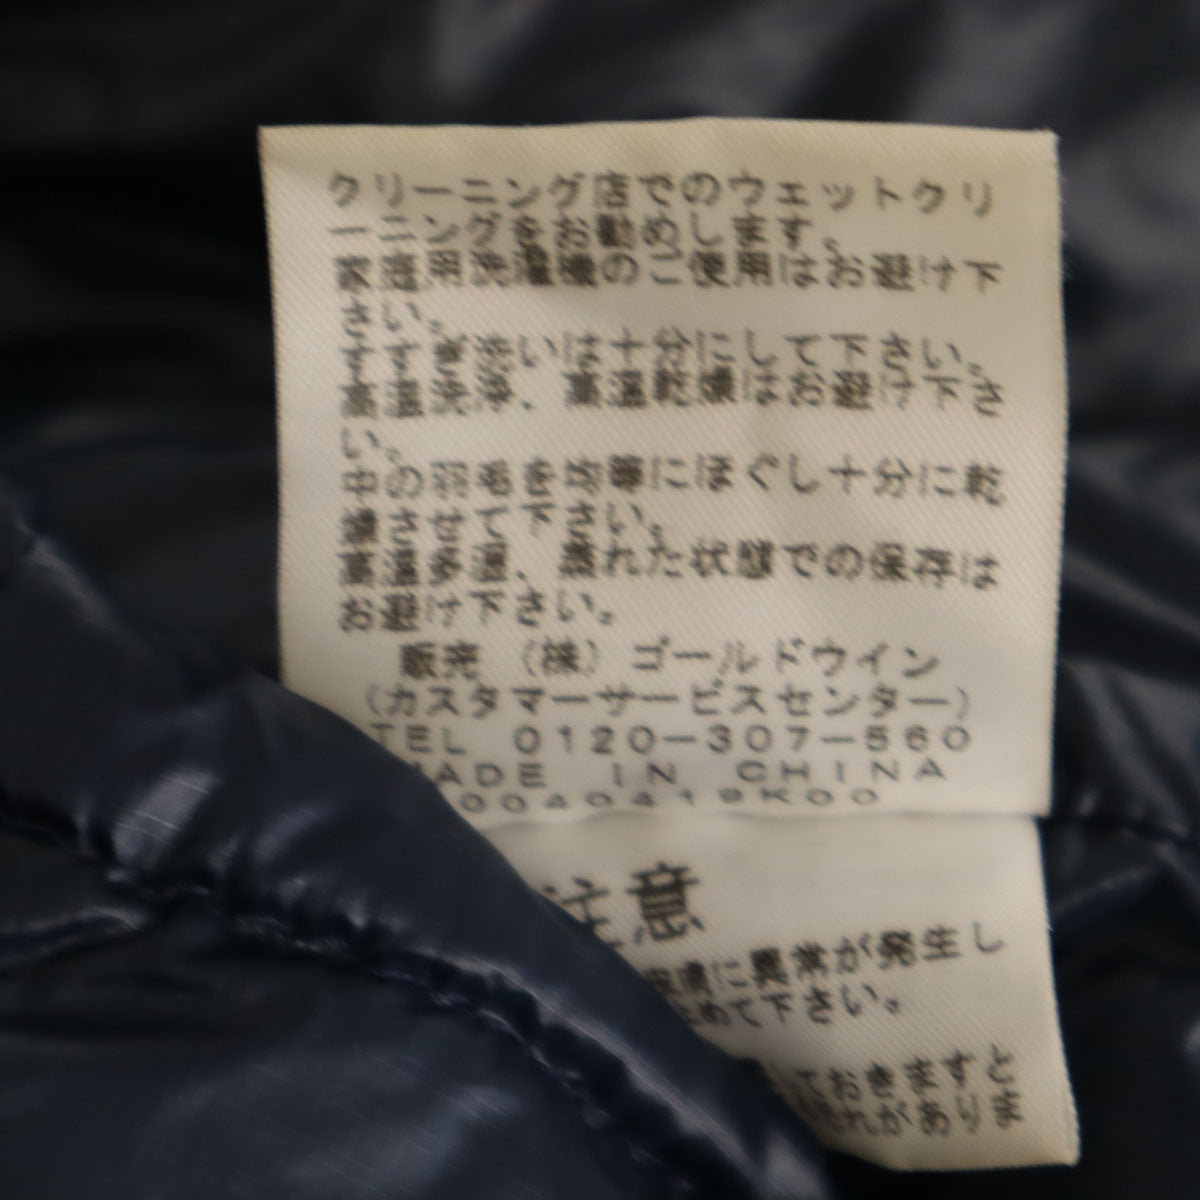 クリーニング店でのウェットクリ
ーニングをお勧めします。
家庭用洗濯機のご使用はお避け下
さい。
すすぎ洗いは十分にして下さい。
高温洗浄、高温乾燥はお避け下さ
い。
中の羽毛を均等にほぐし十分に乾
燥させて下さい。
高温多湿、濡れた状態での保存は
お避け下さい。
販売 (株) ゴールドウイン
(カスタマーサービスセンター)
TEL 0120-307-560
MADE IN CHINA
0040419K00
注意
皮膚に異常が発生し
止めて下さい。
しておきますと
恐れがありま